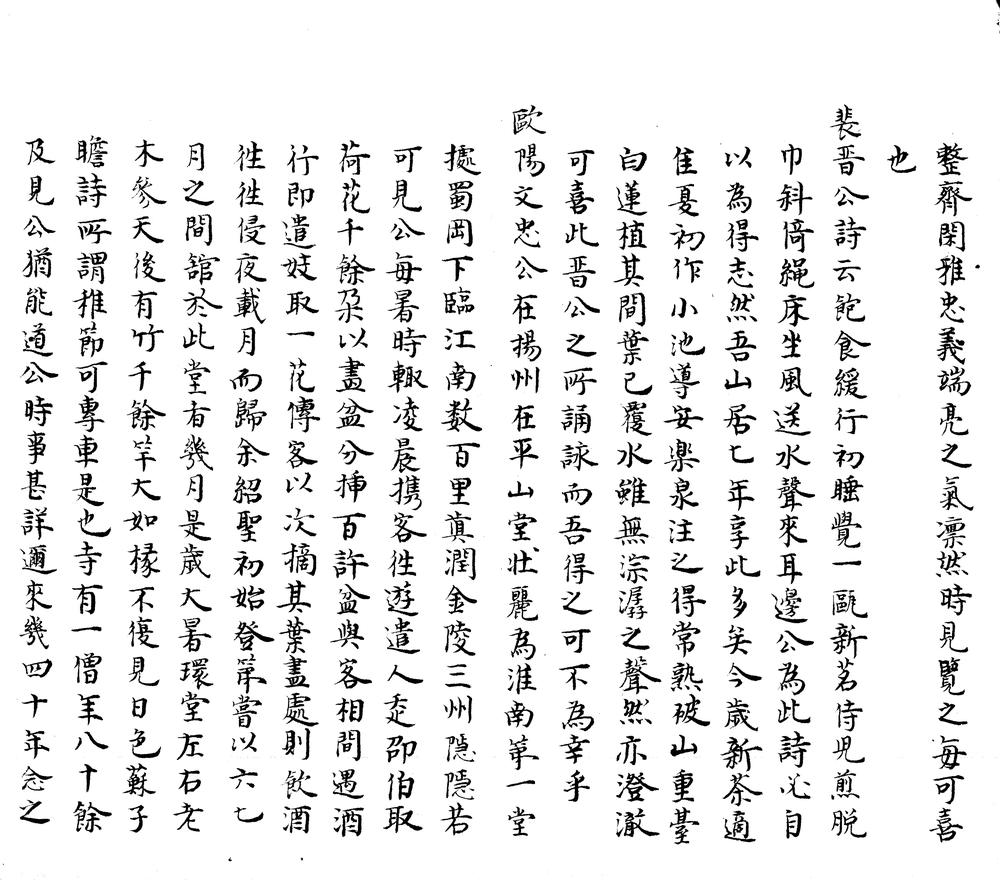 整齊閑雅忠義端亮之氣凛然時見覽之每可喜
也
裴晋公詩云飽食緩行初睡覺一甌新茗侍児煎脱
巾斜倚繩床坐風送水聲來耳邊公為此詩必自
以為得志然吾山居七年享此多矣今歳新茶適
佳夏初作小池導安樂泉注之得常熟破山重臺
白蓮植其間葉已覆水雖無淙潺之聲然亦澄澈
可喜此晋公之所誦詠而吾得之可不為幸乎
歐陽文忠公在揚州在平山堂壮麗為淮南第一堂
據蜀岡下臨江南数百里真潤金陵三州隱隱若
可見公每暑時輙凌晨携客徃遊遣人走邵伯取
荷花千餘朶以畫盆分挿百許盆與客相間遇酒
行即遣妓取一花傳客以次摘其葉盡處則飲酒
徃徃侵夜載月而歸余紹聖初始登第嘗以六七
月之間舘於此堂者幾月是歳大暑環堂左右老
木參天後有竹千餘竿大如椽不復見日色蘇子
瞻詩所謂稚節可專車是也寺有一僧年八十餘
及見公猶能道公時事甚詳邇來幾四十年念之